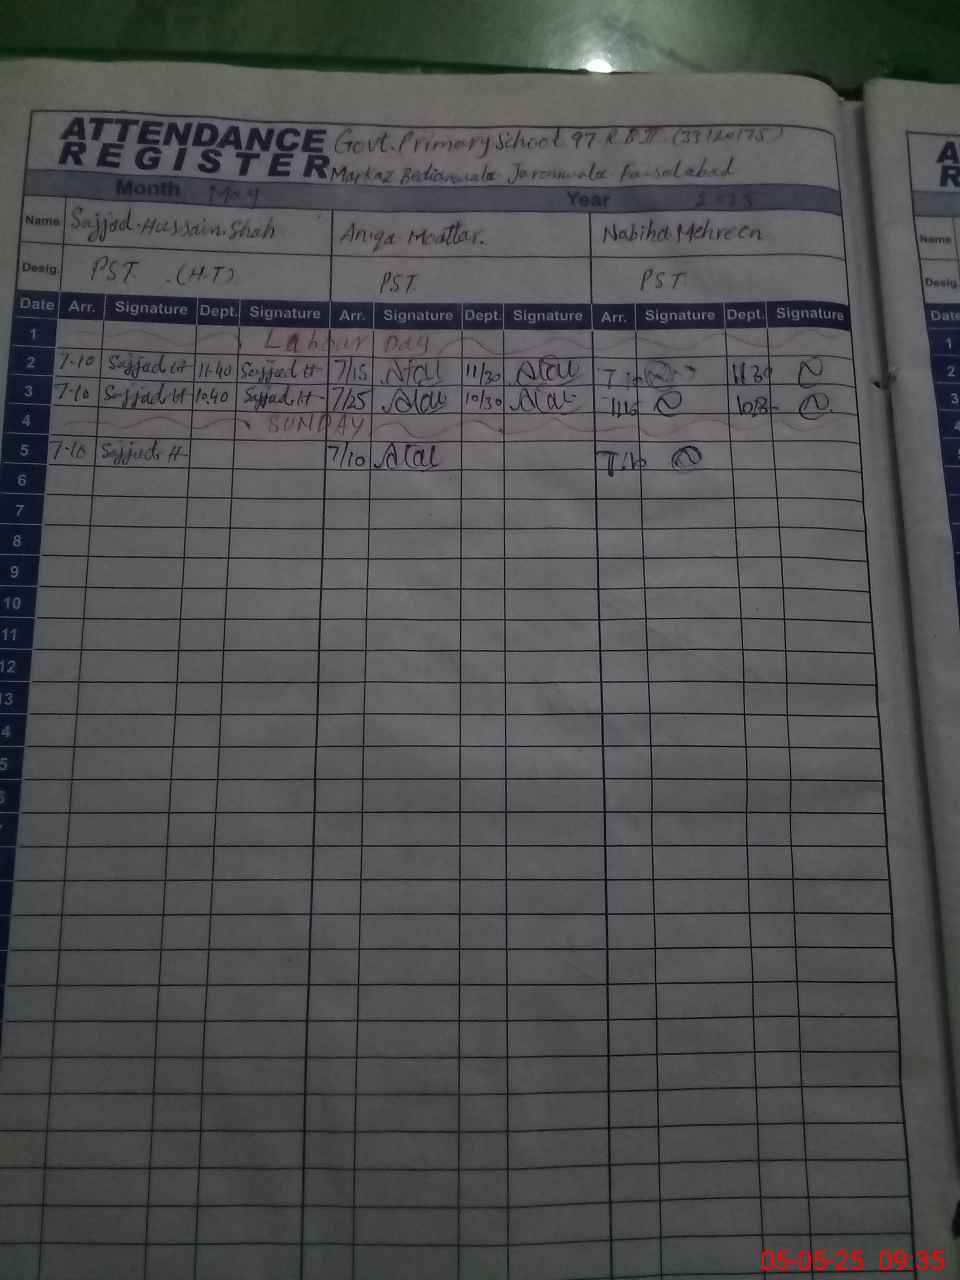 ATTENDANCE REGISTER Govt. Primary School 97 R.B II (33120175)
Markaz Bedianwala Jaranwala Faisalabad
Month May Year 2025
Name Sajjad Hussain Shah Aniqa Name Nabiha Mehreen
Desig. PST. (H.T) PST. PST.
Date Arr. Signature Dept. Signature Arr. Signature Dept. Signature Arr. Signature Dept. Signature
1 Labour Day
2 7-10 Sajjad H 11.40 Sajjad H 7/15 11/30 11.30
3 7-10 Sajjad H 10.40 Sajjad H 7/25 10/30
4 SUNDAY
5 7-10 Sajjad H 7/10
6
7
8
9
10
11
12
13
A
R
Name
Desig.
Date
1
2
3
4
05-05-25 09:35